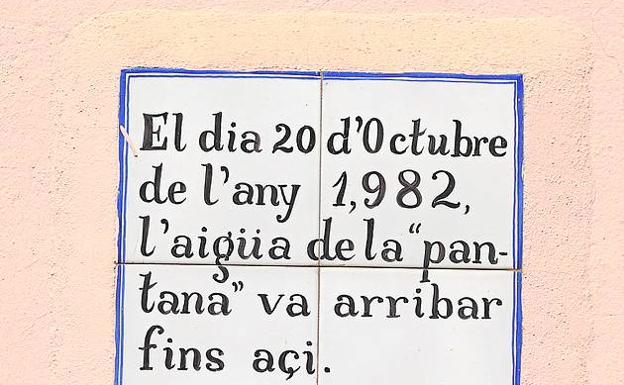 El dia 20 d'Octubre
de l'any 1,982,
l'aigüa de la "pan-
tana" va arribar
fins açi.